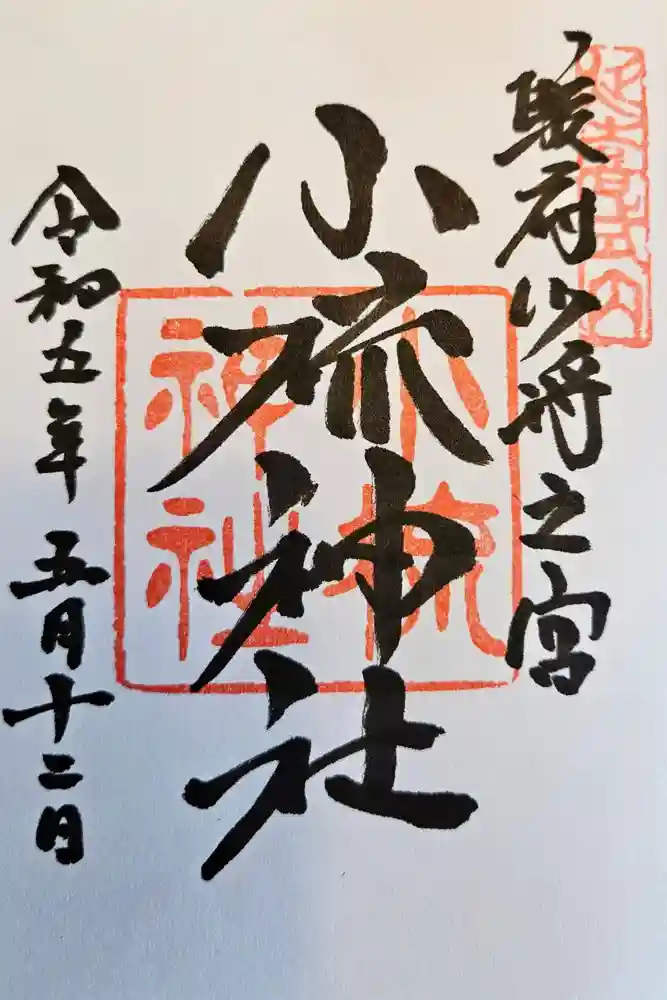 延喜式内
駿府少将之宮
小梳神社
小梳神社
令和五年五月十二日